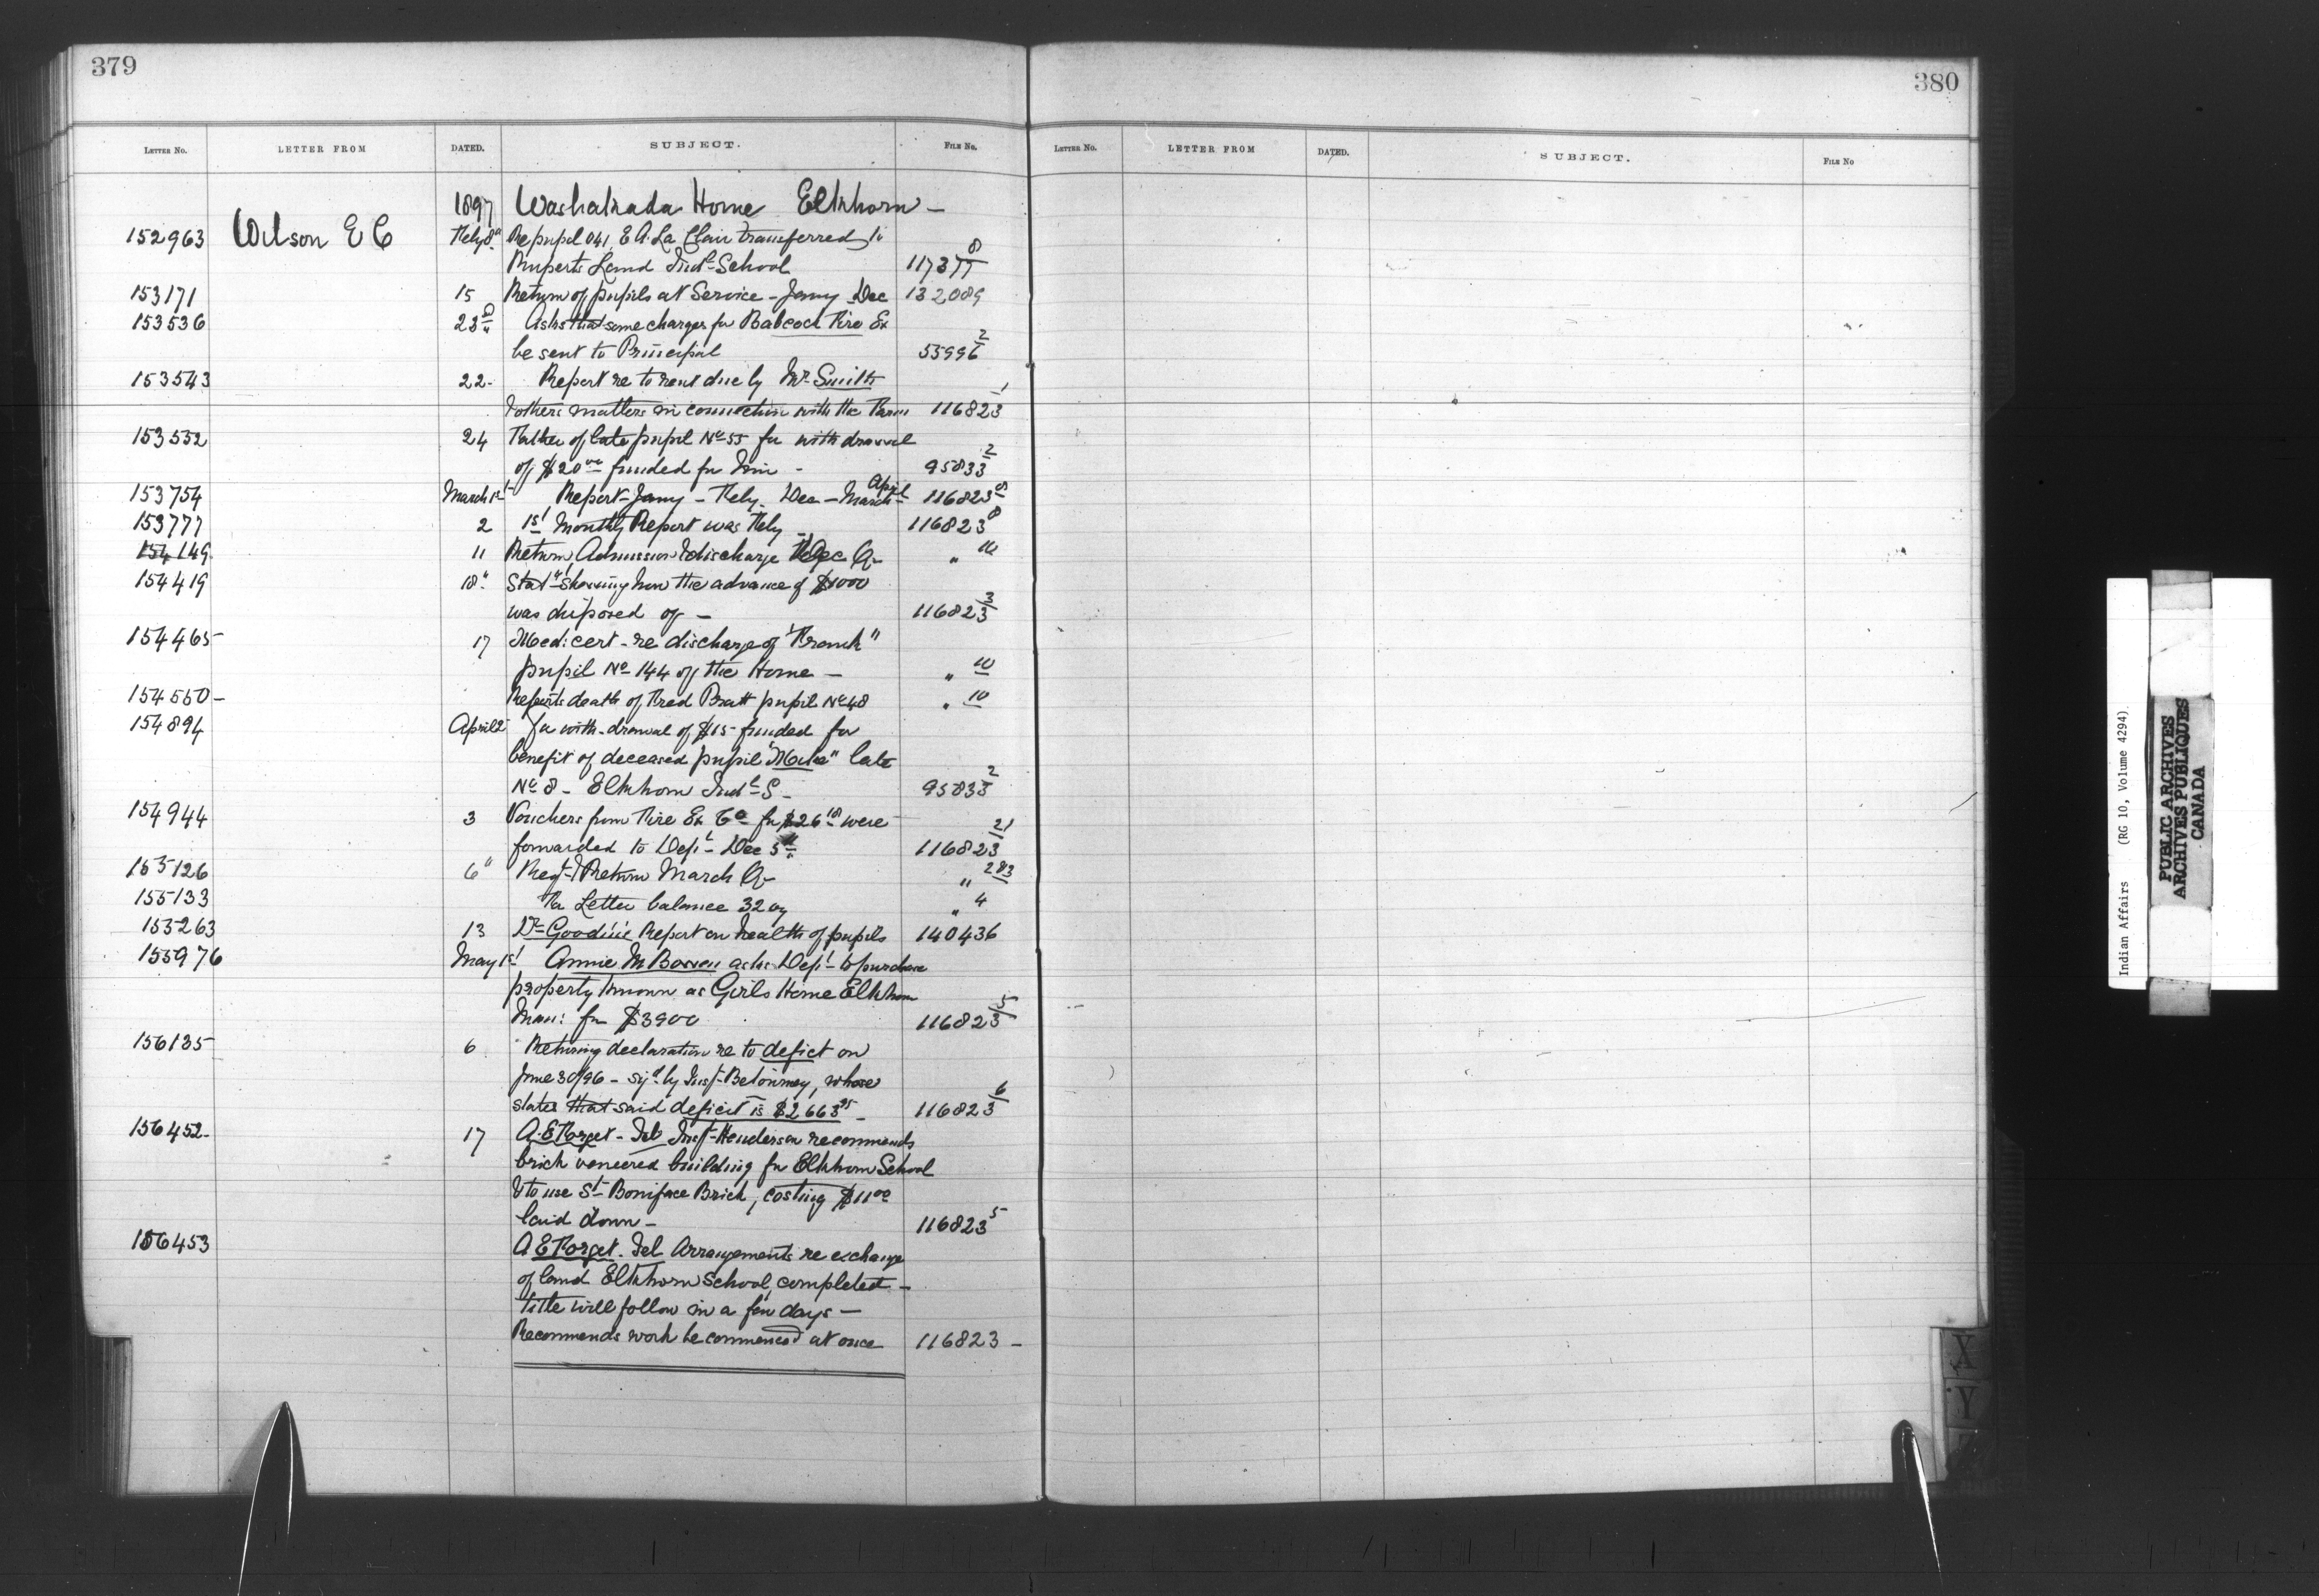 379
LETTER No. LETTER FROM DATED. SUBJECT. FILE No.
1897 Washakada Home Elkhorn —
152963 Wilson E C Feby 8" Re pupil 041, E A. La Clair transferred to
Ruperts Land Indl School 11737 8/7
153171 15 Return of pupils at Service - Jany - Dec 132089
153536 23d Asks that some charges for Babcock Fire Ex
be sent to Principal 55996 2
153543 22- Report re to rent due by Mr Smith
& others matters in connection with the Farm 116823 1
153552 24 Father of late pupil No 55 for with drawal
of $20 00 funded for him - 95833 2
153754 March 1st Report - Jany - Feby - Dec - March - April 116823 8
153777 2 1st Monthly Report was Feby - 116823 8
154149 11 Return, Admission & discharge Dec Qr " 10
154419 18" Statt showing how the advance of $1000
was disposed of — 116823 3
154465 17 Medi: cert - re discharge of "Frank"
pupil No 144 of the Home — " 10
154550 - Reports death of Fred Pratt pupil No 48 " 10
154894 April 2 for with-drawal of $15 funded for
benefit of deceased pupil "Make" late
No 8 - Elkhorn Indl S - 95833 2
154944 3 Vouchers from Fire Ex Co for $26 18 were
forwarded to Dept - Dec 5th 116823 21
155126 6" Reqt & Return March Qr " 2&3
155133 Fa Letter balance 3207 " 4
155263 13 Dr Goodin's Report on health of pupils 140436
155976 May 1st Annie M Bowen asks Dept to purchase
property known as Girls Home Elkhorn
Man: for $3900 116823 5
156135 6 Returning declaration re to deficit on
June 30/96 - sigd by Inspt Betournay, whose
states that said deficit is $2663 25 - 116823 6
156452 - 17 A. E Forget - Tel Inspt Henderson recommends
brick veneered building for Elkhorn School
& to use St Boniface Brick, costing $11 00
laid down - 116823 5
156453 A E Forget - Tel Arrangements re exchange
of land Elkhorn School, completed -
title will follow in a few days —
Recommends work be commenced at once 116823 -
380
LETTER No. LETTER FROM DATED. SUBJECT. FILE No
X
Y
Indian Affairs (RG 10, Volume 4294)
PUBLIC ARCHIVES
ARCHIVES PUBLIQUES
CANADA